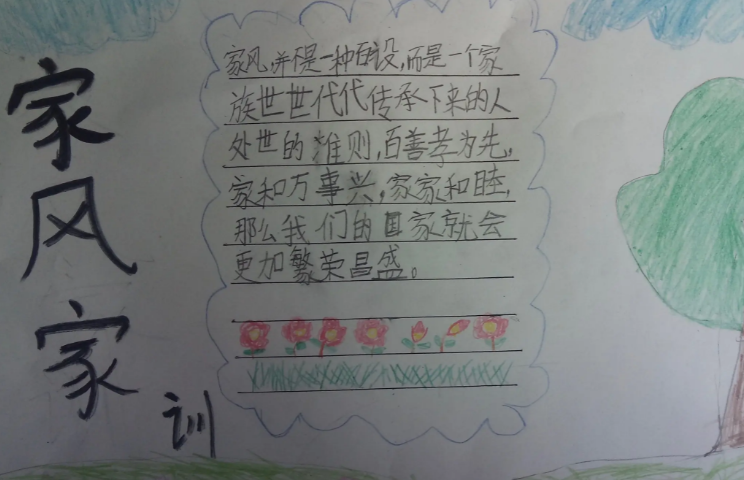 家风家训
家风,并不是一种白设,而是一个家
族世世代代传承下来的人
处世的准则,百善孝为先,
家和万事兴,家家和睦,
那么我们的国家就会
更加繁荣昌盛。